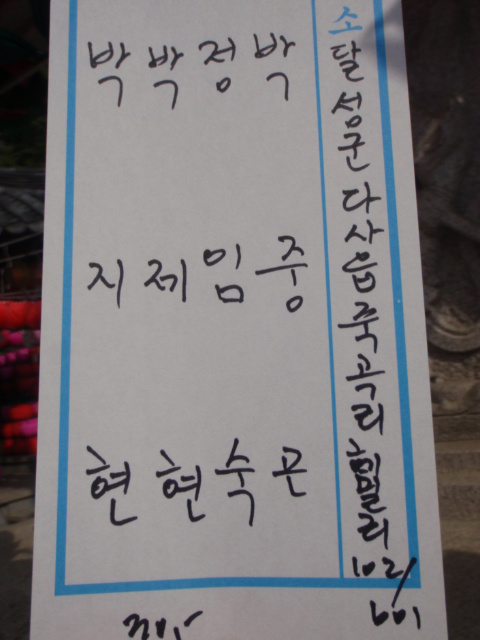 소 달성군 다사읍 죽곡리
102/601
박중곤
정임숙
박제현
박지현